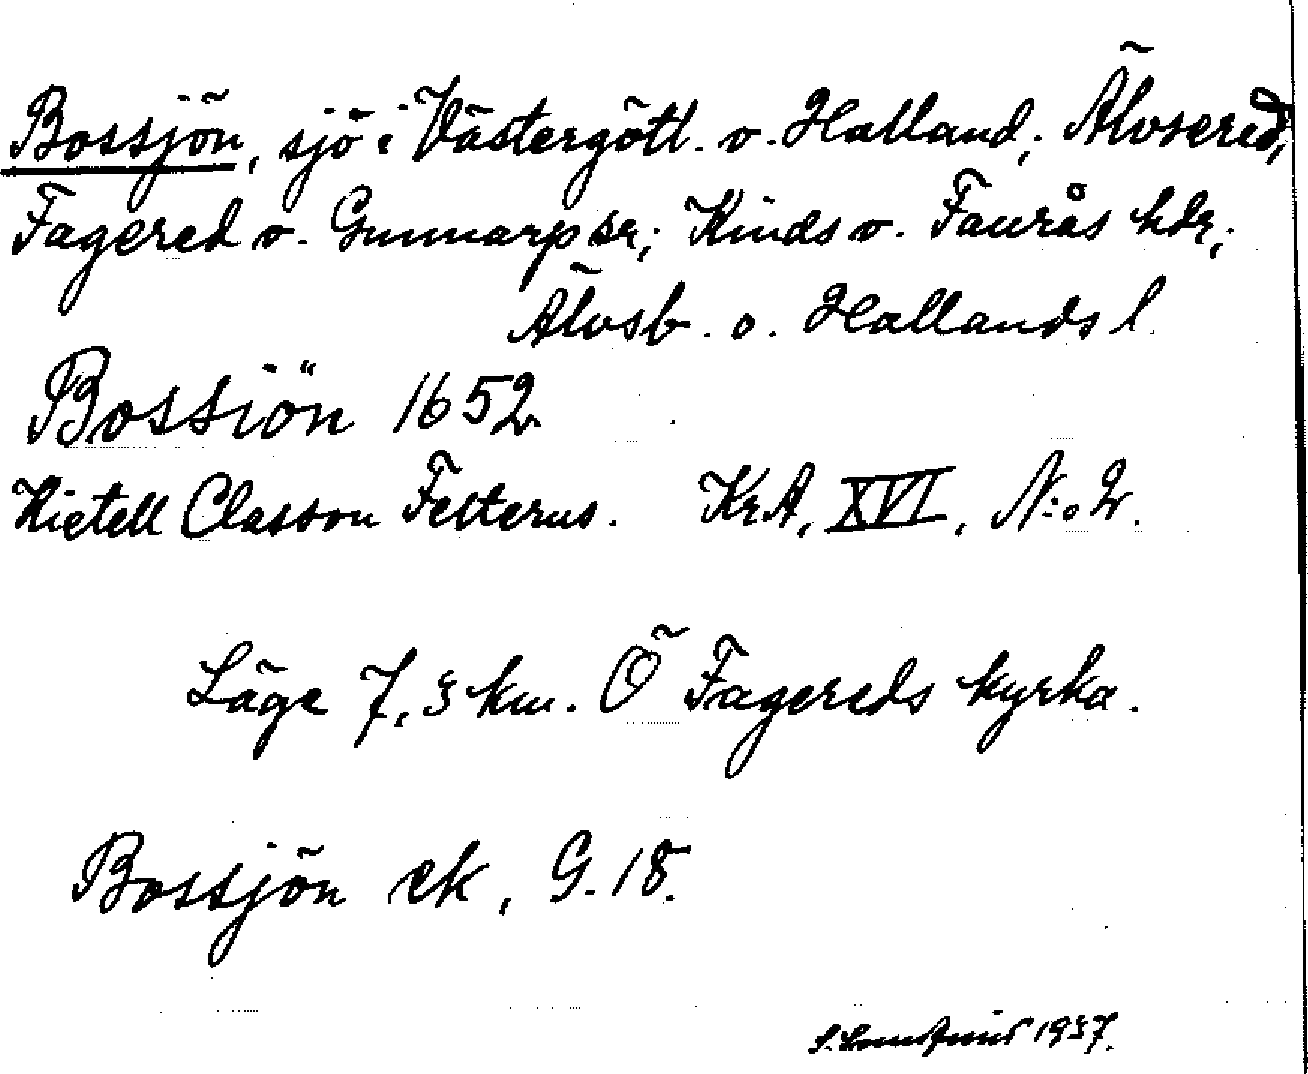 Bossjön, sjö i Västergötl. o. Halland; Älvsered,
Fagered o. Gunnarp sn; Kinds o. Faurås hdr;
Älvsb. o. Hallands l.
Bossiön 1652
Kietell Classon Felterus. KrA, XVI, N:o 2.
Läge 7,5 km. Ö Fagereds kyrka.
Bossjön ek, G. 18.
1937.